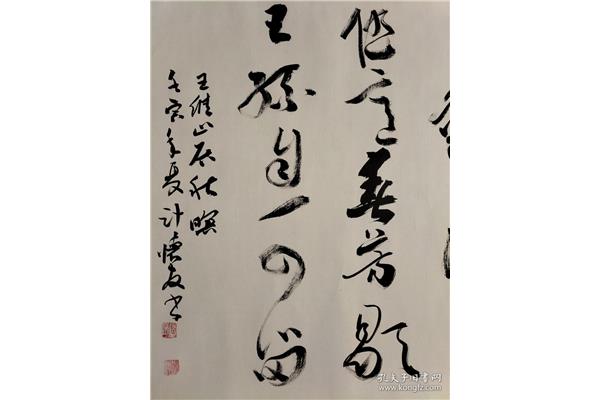 随意春芳歇
王孫自可留
王維山居秋暝
壬寅年夏计懷友书
孔夫子旧书网
www.kongfz.com